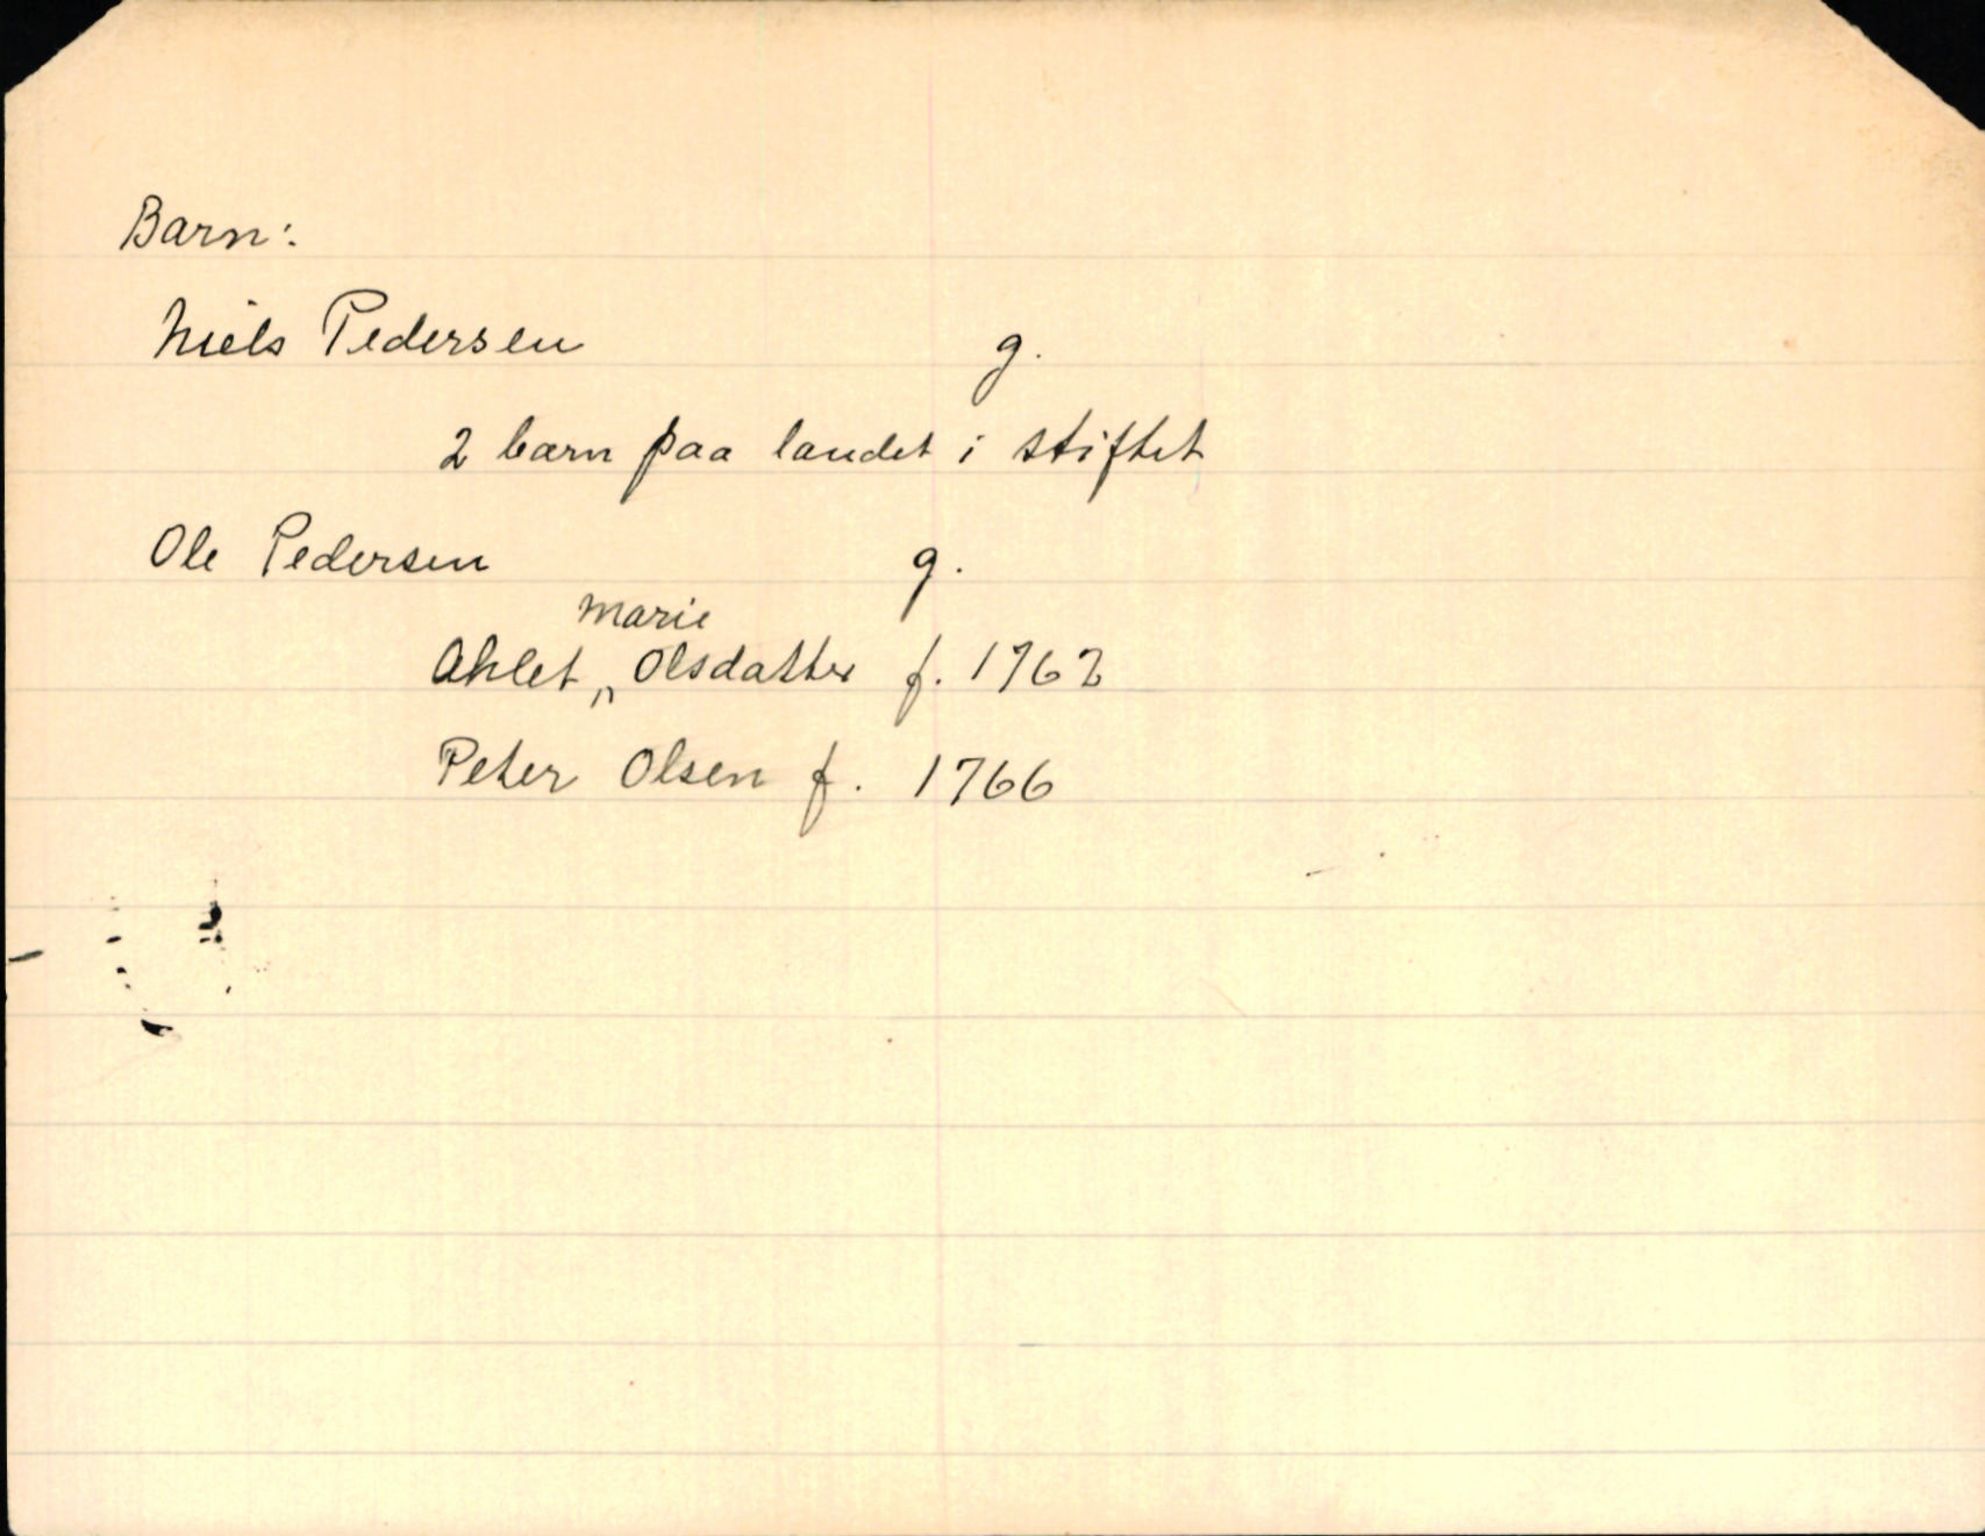 Barn:
Niels Pedersen g.
2 barn paa landet i stiftet
Ole Pedersen g.
Marie
Ahlet „ Olsdatter f. 1762
Peter Olsen f. 1766